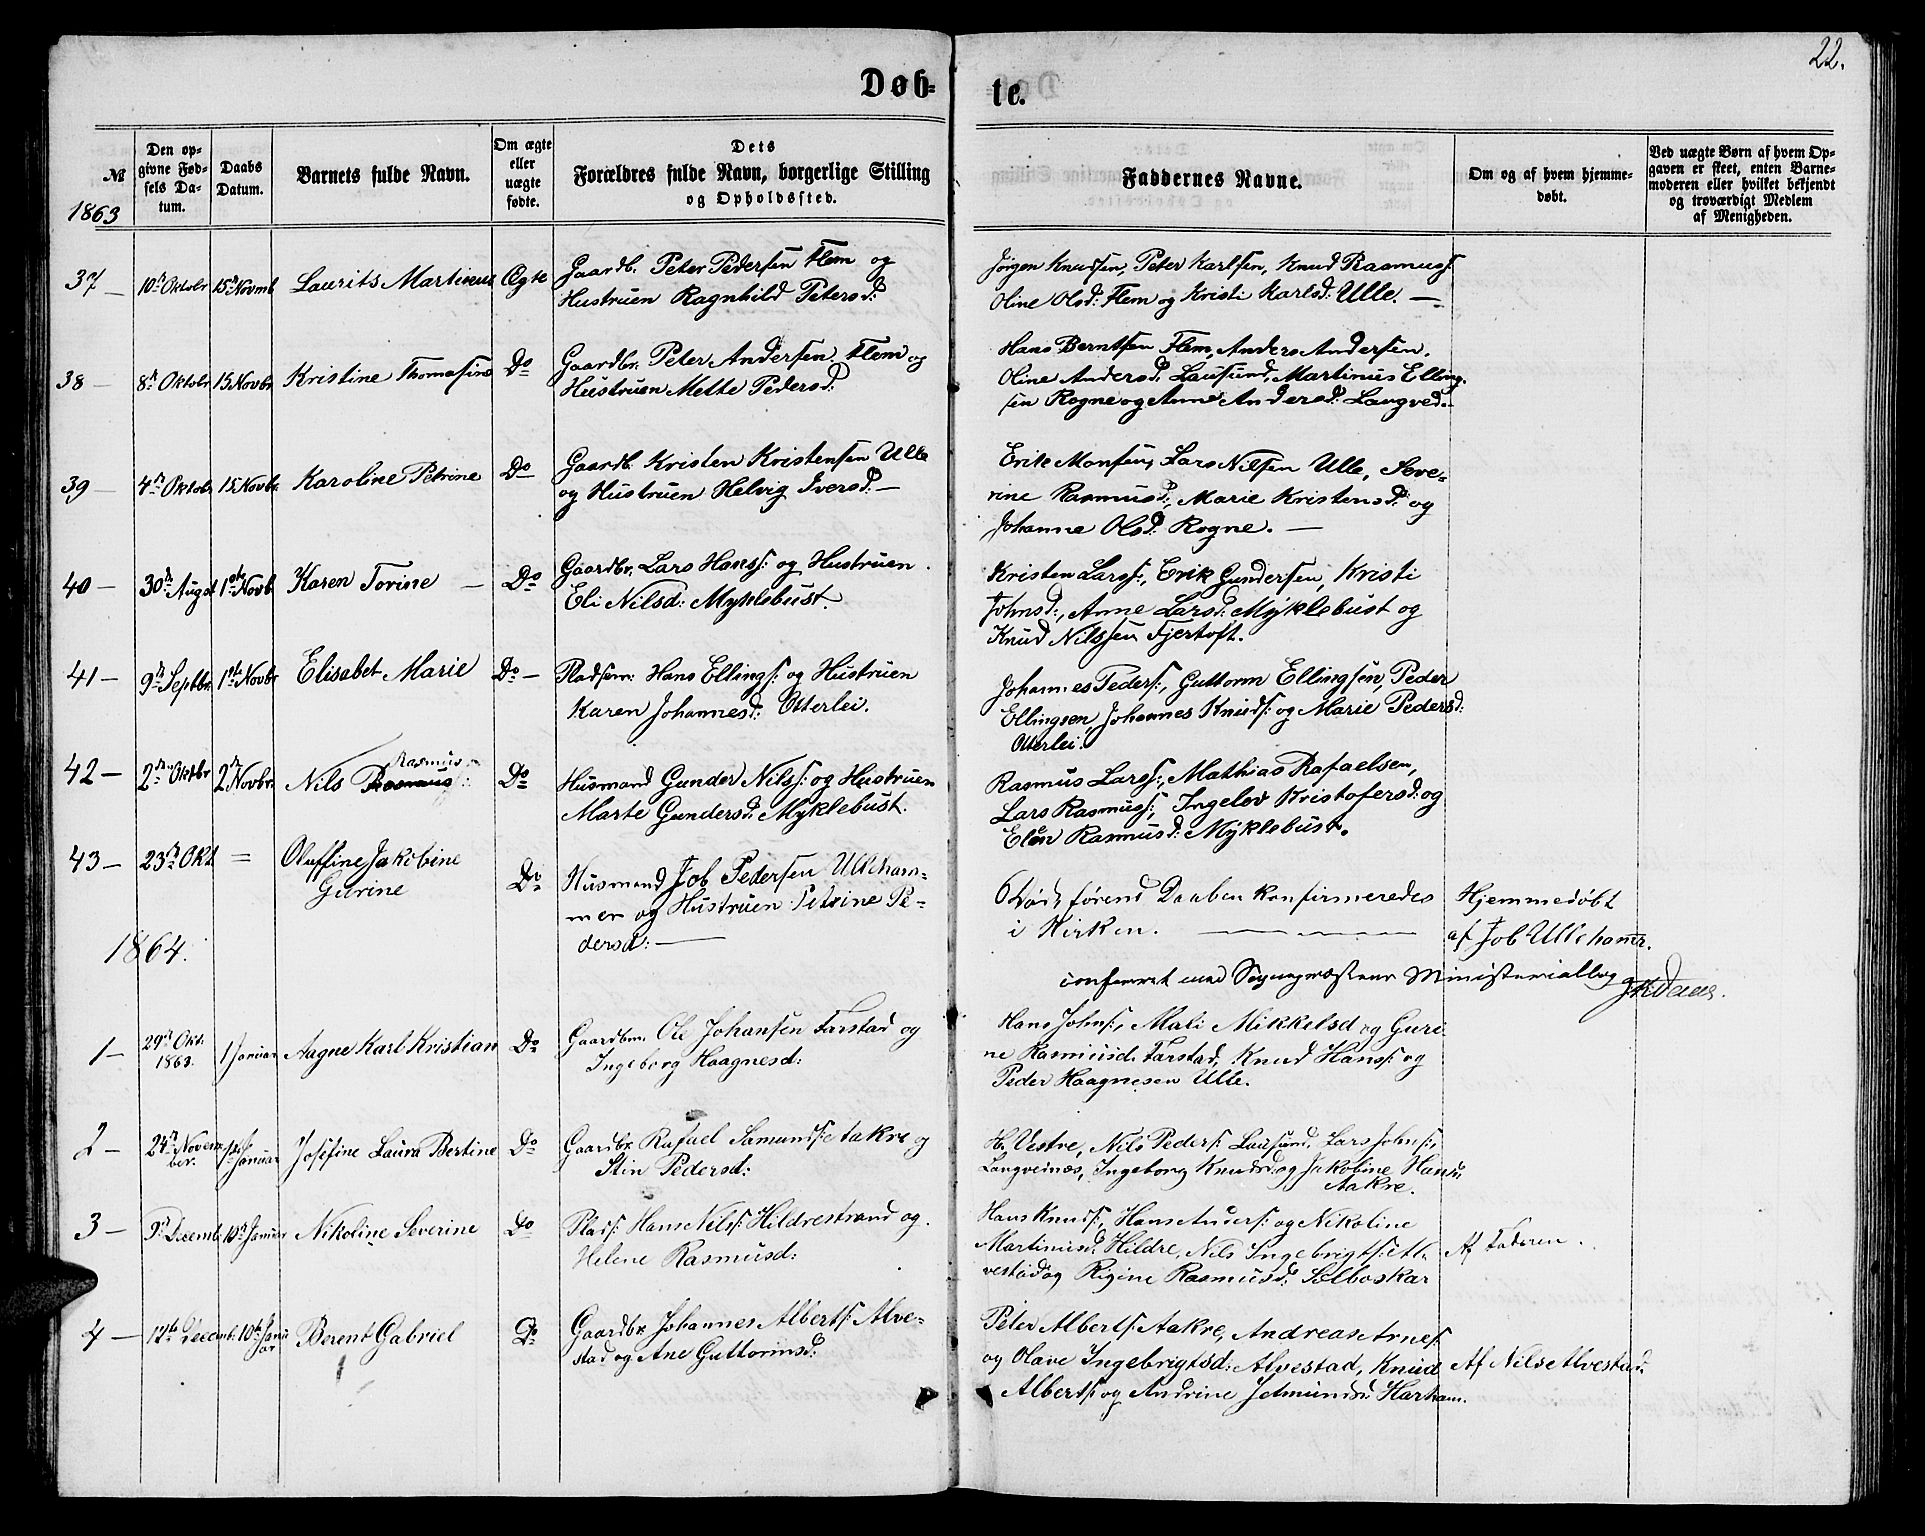 22.
Døb-
te.
№
Den op-
givne Fød-
sels Da-
tum.
Daabs
Datum.
Barnets fulde Navn.
Om ægte
eller
uægte
fødte.
Dets
Forældres fulde Navn, borgerlige Stilling
og Opholdssted.
Faddernes Navne.
Om og af hvem hjemme-
døbt.
Ved uægte Børn af hvem Op-
gaven er skeet, enten Barne-
moderen eller hvilket bekjendt
og troværdigt Medlem
af Menigheden.
1863
37 — 10de Oktobr 15de Novmb Laurits Martinus Ægte
Gaardb. Peter Pedersen Flem og
Hustruen Ragnhild Petersd:
Jörgen Knudsen, Peter Karlsen, Knud Rasmuss:
Oline Olsd: Flem og Kristi Karlsd: Ulle. —
38 — 8de Oktobr 15 Novbr Kristine Thomasine Do
Gaardbr. Peter Andersen Flem og
Hustruen Mette Pedersd:
Hans Berntsen Flem, Anders Andersen.
Oline Andersd: Lausund, Martinus Elling-
sen Rogne og Anne Andersd: Langved.
39 — 4de Oktobr 15 Novbr. Karoline Petrine Do
Gaardb. Kristen Kristensen Ulle
og Hustruen Helvig Iversd: —
Erik Monsen, Lars Nilsen Ulle, Seve-
rine Rasmusd:, Marie Kristensd: og
Johanne Olsd: Rogne. —
40 — 30de Augst 1ste Novb Karen Torine — Do
Gaardbr. Lars Hanss: og Hustruen
Eli Nilsd: Myklebust.
Kristen Larss:, Erik Gundersen, Kristi
Johnsd:, Anne Larsd: Myklebust og
Knud Nilssen Fjertoft.
41 — 9de Septbr. 1ste Novbr Elisabet Marie Do —
Pladsem: Hans Ellings: og Hustruen
Karen Johannesd: Otterlei.
Johannes Peders:, Guttorm Ellingsen, Peder
Ellingsen, Johannes Knuds: og Marie Pedersd:
Otterlei.
42 — 2den Oktbr 2den Novbr. Nils Rasmus Do
Husmand Gunder Nilss: og Hustruen
Marte Gundersd. Myklebust.
Rasmus Larss:, Mathias Rafaelsen,
Lars Rasmuss:, Ingelev Kristofersd: og
Elen Rasmusd: Myklebust.
43 — 23de Okt = Oluffine Jakobine
Gurine Do
Husmand Job Pedersen Ulleham-
mer og Hustruen Petrine Pe-
dersd: —
Död förend Daaben konfirmeredes
i Kirken. —
Hjemmedöbt
af Job Ullehamr.
conferert med Sognepræstens Ministerialbog
1864.
1 — 29de Okt: 1863. 1 Januar Aagne Karl Kristian Do
Gaardbm. Ole Johansen Farstad og
Ingeborg Haagnesd:
Hans Johns:, Mali Mikkelsd og Guri-
ne Rasmusd. Farstad, Knud Hanss: og
Peder Haagnesen Ulle.
2 — 24de Novem-
ber. 1ste Januar Josefine Laura Bertine Do
Gaardbr. Rafael Samunds: Aakre og
Stin Pedersd:
H. Vestre, Nils Peders: Lausund. Lars Johns:,
Langveinæs, Ingeborg Knudsd: og Jakobine Hansd:
Aakre.
3 — 9de Decemb. 10de Januar Nikoline Severine Do
Plads: Hans Nils: Hildrestrand og
Helene Rasmusd:
Hans Knuds:, Hans Anders: og Nikoline
Martinusd: Hildre, Nils Ingebrigts: Al-
vestad og Rigine Rasmusd: Sælboskar
Af Faderen.
4 — 17de Decemb: 10de Janu-
ar Berent Gabriel Do
Gaardbr. Johannes Alberts: Alve-
stad og Ane Guttormsd:
Peter Alberts: Aakre, Andreas Arnes:
og Olave Ingebrigtsd: Alvestad, Knud
Alberts: og Andrine Jetmundsd: Harham.
Af Nils Alvestad.